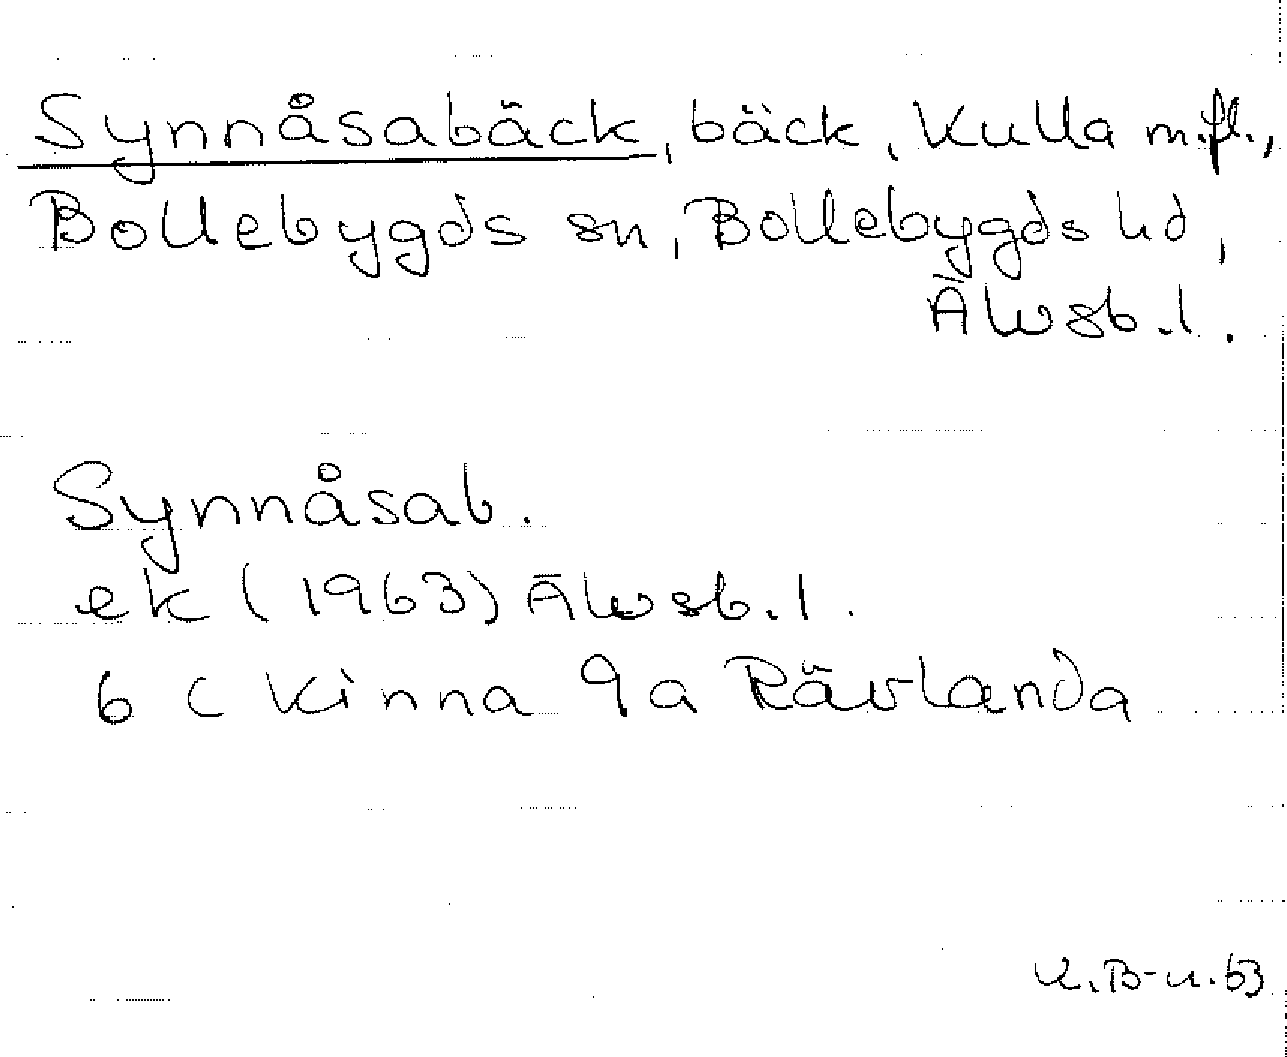 Synnåsabäck, bäck, Kulla m.fl.,
Bollebygds sn, Bollebygds hd,
Älvsb.l.
Synnåsab.
ek (1963) Älvsb.l.
6 C Kinna 9a Rävlanda
K.B-n.63